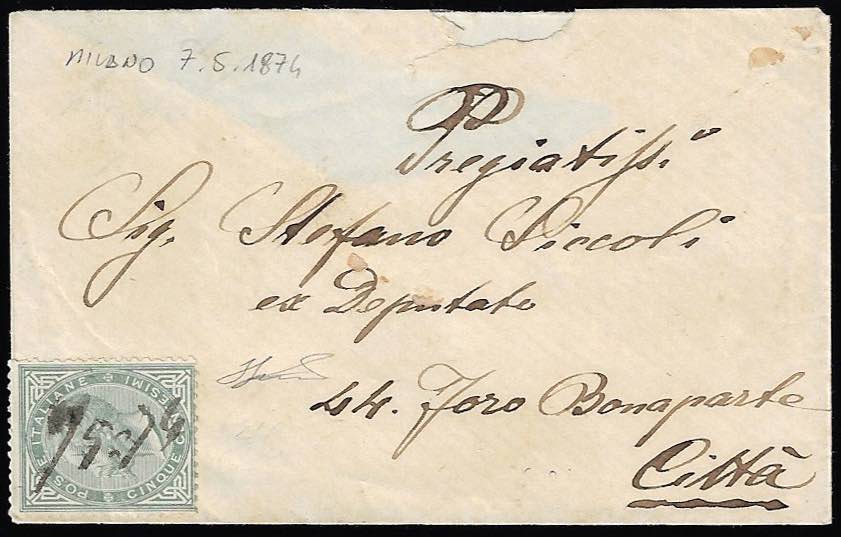 MILANO 7.5.1874
Pregiatiss.o
Sig. Stefano Piccoli
ex Deputato
44. Foro Bonaparte
Città
POSTE ITALIANE
CINQUE CENTESIMI
7/5/74